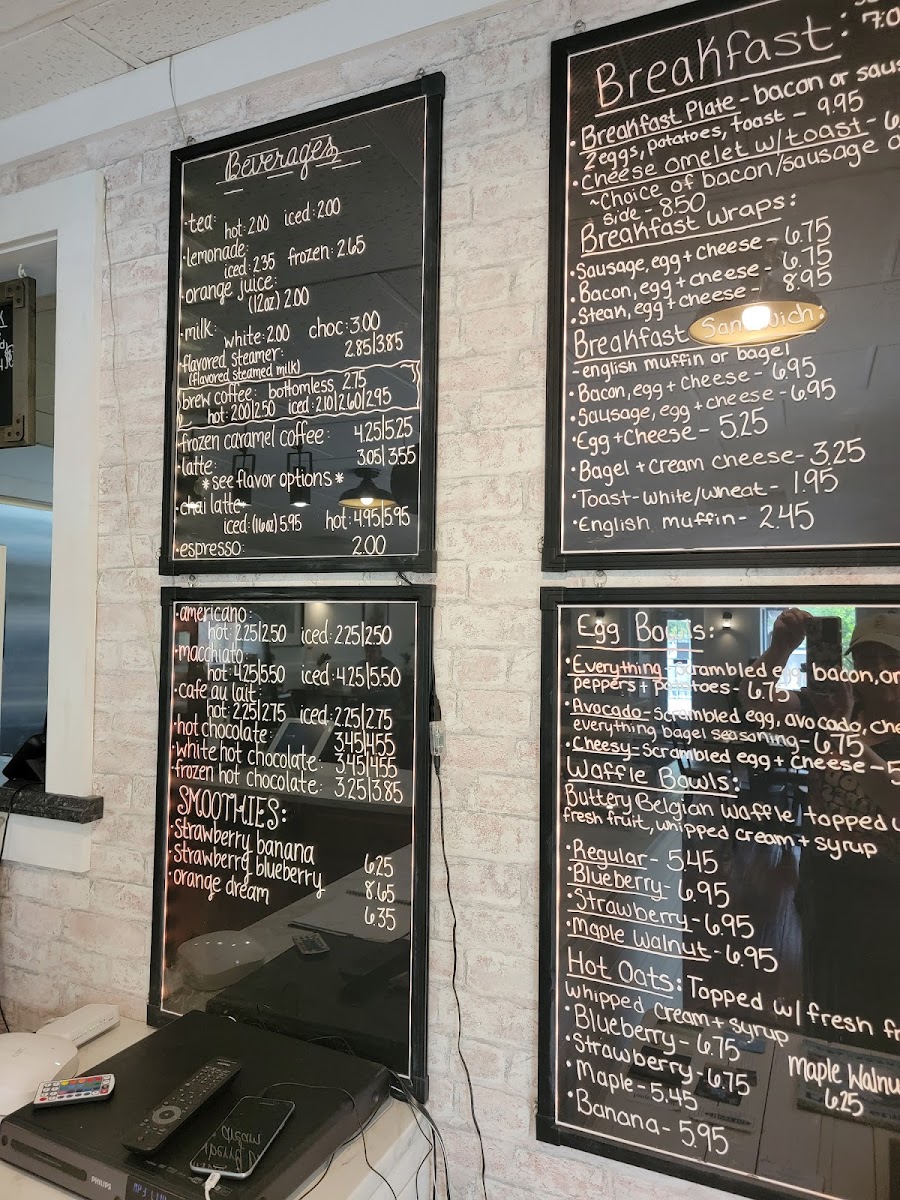 Beverages
·tea: hot: 2.00 iced: 2.00
·lemonade:
iced: 2.35 frozen: 2.65
·orange juice:
(12oz) 2.00
·milk: white: 2.00 choc: 3.00
·flavored steamer: 2.85|3.85
(flavored steamed milk)
brew coffee: bottomless 2.75
hot: 2.00|2.50 iced: 2.10|2.60|2.95
·frozen caramel coffee: 4.25|5.25
·latte: 3.05|3.55
*see flavor options*
·chai latte
iced: (16oz) 5.95 hot: 4.95|5.95
·espresso: 2.00
·americano:
hot: 2.25|2.50 iced: 2.25|2.50
·macchiato:
hot: 4.25|5.50 iced: 4.25|5.50
·cafe au lait:
hot: 2.25|2.75 iced: 2.25|2.75
·hot chocolate: 3.45|4.55
·white hot chocolate: 3.45|4.55
·frozen hot chocolate: 3.25|3.85
SMOOTHIES:
·strawberry banana 6.25
·strawberry blueberry 8.65
·orange dream 6.35
PHILIPS
Breakfast:
·Breakfast Plate - bacon or
2 eggs, potatoes, toast - 9.95
·Cheese omelet w/toast -
~Choice of bacon/sausage
side - 8.50
Breakfast Wraps:
·Sausage, egg + cheese - 6.75
·Bacon, egg + cheese - 6.75
·Steak, egg + cheese - 8.95
Breakfast Sandwich:
-english muffin or bagel
·Bacon, egg + cheese - 6.95
·Sausage, egg + cheese - 6.95
·Egg + Cheese - 5.25
·Bagel + cream cheese - 3.25
·Toast - white/wheat - 1.95
·English muffin - 2.45
Egg Bowls:
·Everything - scrambled egg, bacon,
peppers + potatoes - 6.75
·Avocado - scrambled egg, avocado,
everything bagel seasoning - 6.75
·Cheesy - scrambled egg + cheese -
Waffle Bowls:
Buttery Belgian waffle topped
fresh fruit, whipped cream + syrup
·Regular - 5.45
·Blueberry - 6.95
·Strawberry - 6.95
·Maple Walnut - 6.95
Hot Oats: Topped w/ fresh
whipped cream + syrup
·Blueberry - 6.75
·Strawberry - 6.75
·Maple - 5.45
·Banana - 5.95
Maple Walnu
6.25